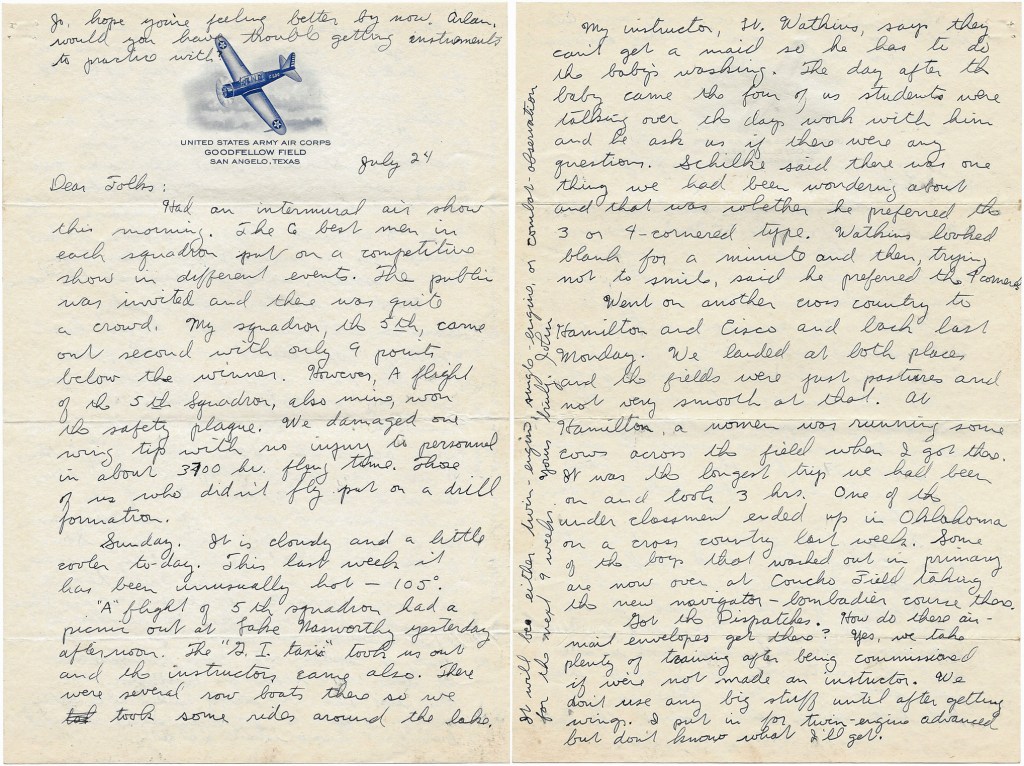 Jo, hope you're feeling better by now. Arlan,
would you have trouble getting instruments
to practice with?
UNITED STATES ARMY AIR CORPS
GOODFELLOW FIELD
SAN ANGELO, TEXAS
July 24
Dear Folks:
Had an intermural air show
this morning. The 6 best men in
each squadron put on a competitive
show in different events. The public
was invited and there was quite
a crowd. My squadron, the 5th, came
out second with only 9 points
below the winner. However, A flight
of the 5th Squadron, also mine, won
the safety plaque. We damaged one
wing tip with no injury to personnel
in about 3700 hr. flying time. Those
of us who didn't fly put on a drill
formation.
Sunday. It is cloudy and a little
cooler to-day. This last week it
has been unusually hot - 105°.
"A" flight of 5th squadron had a
picnic out at Lake Nasworthy yesterday
afternoon. The "G. I. taxi" took us out
and the instructors came also. There
were several row boats there so we
took some rides around the lake.
My instructor, Lt. Watkins, says they
can't get a maid so he has to do
the baby's washing. The day after the
baby came the four of us students were
talking over the days work with him
and he ask us if there were any
questions. Schilke said there was one
thing we had been wondering about
and that was whether he preferred the
3 or 4-cornered type. Watkins looked
blank for a minute and then, trying
not to smile, said he preferred the 4 corners.
Went on another cross country to
Hamilton and Cisco and back last
Monday. We landed at both places
and the fields were just pastures and
not very smooth at that. At
Hamilton, a women was running some
cows across the field when I got there.
It was the longest trip we had been
on and took 3 hrs. One of the
under classmen ended up in Oklahoma
on a cross country last week. Some
of the boys that washed out in primary
are now over at Concho Field taking
the new navigator-bombadier course there.
Got the Dispatches. How do these air-
mail envelopes get there? Yes, we take
plenty of training after being commissioned
if we're not made an instructor. We
don't use any big stuff until after getting
wings. I put in for twin-engine advanced
but don't know what I'll get.
It will be either twin-engine, single-engine, or combat-observation
for the next 9 weeks. Yours truly, John